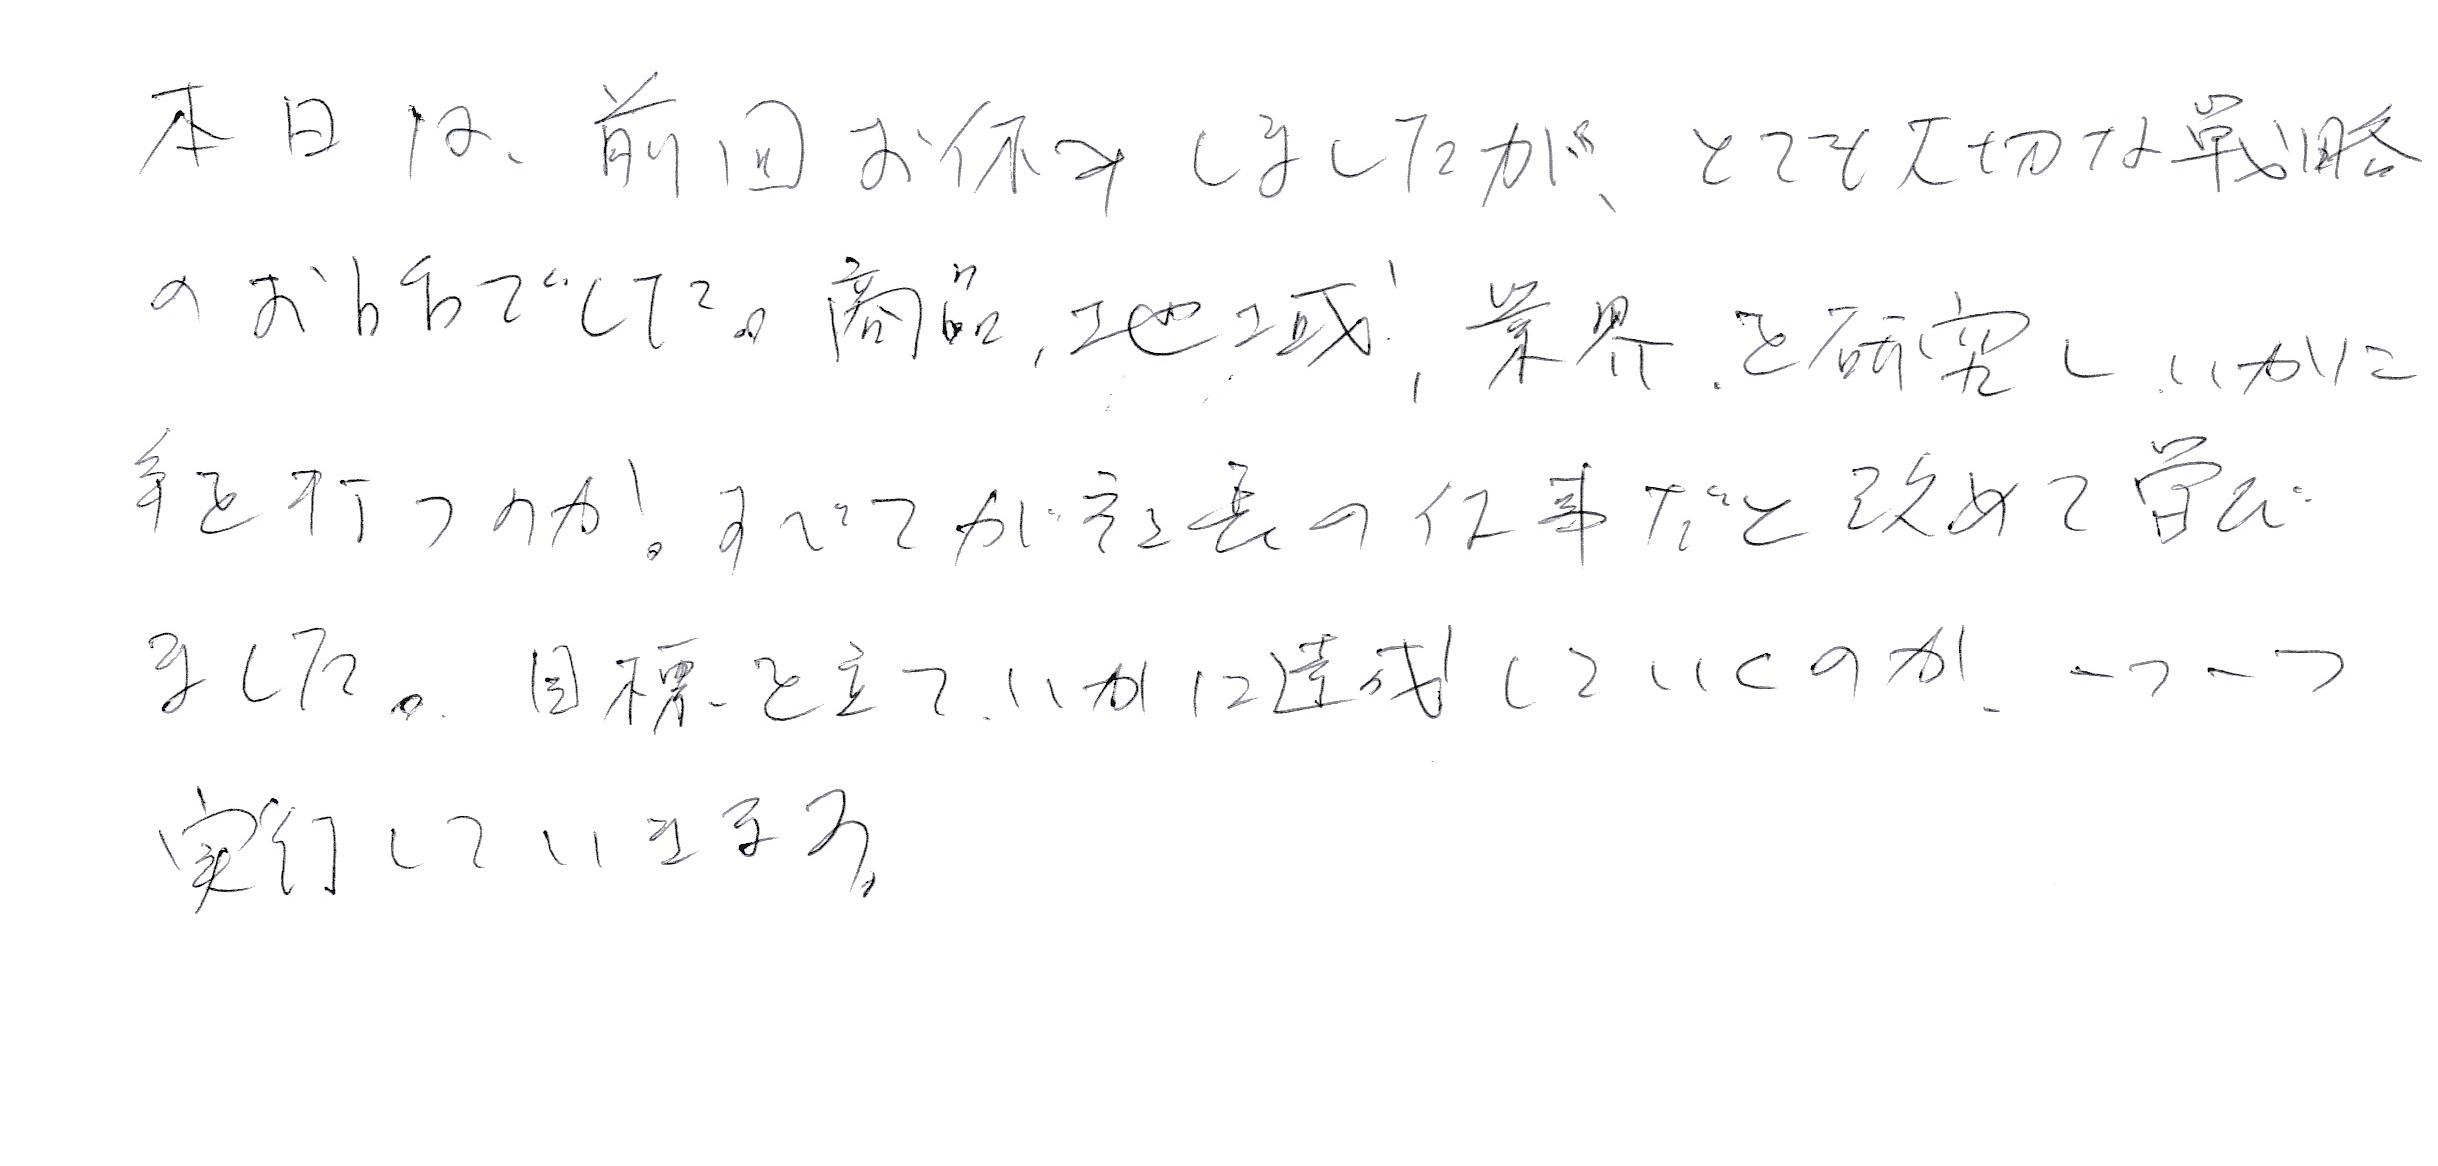 本日は、前回お休みしましたが、とても大切な戦略
のお話でした。商品、地域、業界を研究し、いかに
手を打つのか!。すべてが社長の仕事だと改めて学び
ました。目標を立て、いかに達成していくのか、一つ一つ
実行していきます。